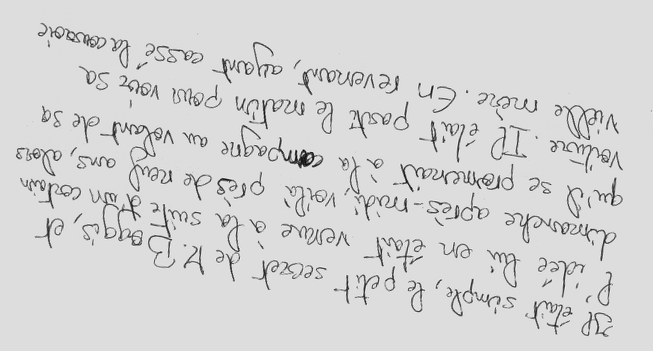 Il était simple, le petit secret de M. Boggis, et
l'idée lui en était venue à la suite d'un certain
dimanche après-midi, voilà près de neuf ans, alors
qu'il se promenait à la campagne au volant de sa
voiture. Il était parti le matin pour voir sa
vielle mère. En revenant, ayant cassé la courroie